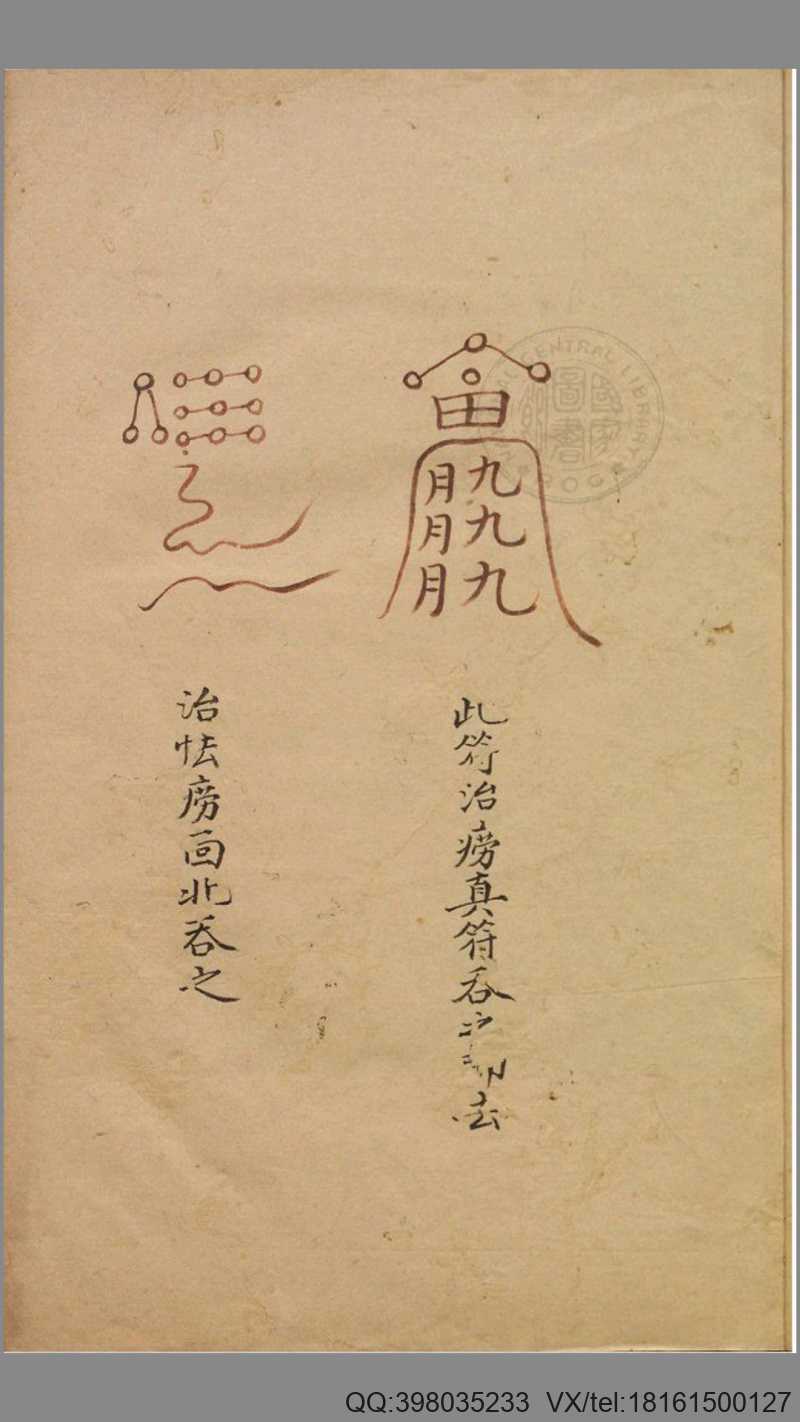 田
九九九
月月月
此符治痨真符吞之即去
治怯痨面北吞之
CENTRAL LIBRARY
國家圖書館
QQ:398035233 VX/tel:18161500127